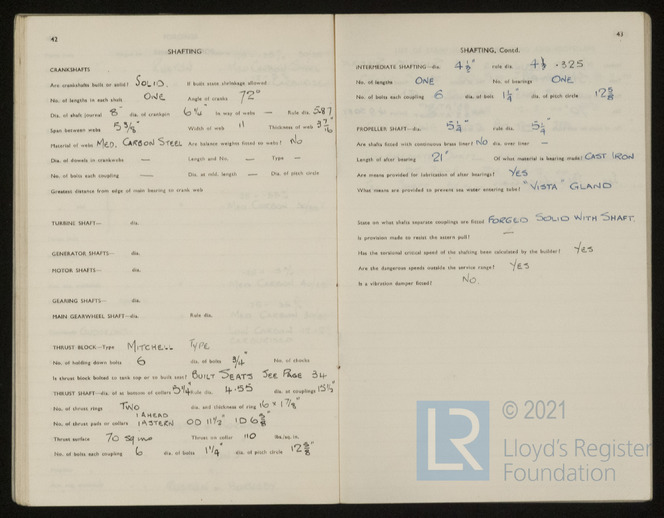 42
SHAFTING
CRANKSHAFTS
Are crankshafts built or solid? SOLID. If built state shrinkage allowed
No. of lengths in each shaft ONE Angle of cranks 72°
Dia. of shaft journal 8" dia. of crankpin in way of webs — Rule dia. 5.87
Span between webs Width of web 11 Thickness of web
Material of webs MED. CARBON STEEL Are balance weights fitted to webs? NO
Dia. of dowels in crankwebs — Length and No. — Type —
No. of bolts each coupling — Dia. at mid. length — Dia. of pitch circle
Greatest distance from edge of main bearing to crank web
TURBINE SHAFT— dia.
GENERATOR SHAFTS— dia.
MOTOR SHAFTS— dia.
GEARING SHAFTS— dia.
MAIN GEARWHEEL SHAFT—dia. Rule dia.
THRUST BLOCK—Type MITCHELL TYPE
No. of holding down bolts 6 dia. of bolts 3/4" No. of chocks
Is thrust block bolted to tank top or to built seat? BUILT SEATS SEE PAGE 34
THRUST SHAFT—dia. at bottom of collars 5 1/4" Rule dia. 4.55 dia. at couplings 15 1/2"
No. of thrust rings TWO dia. and thickness of ring 16 x 1 7/8"
1 AHEAD
No. of thrust pads or collars 1 ASTERN OD 11 1/2" ID 6 5/8"
Thrust surface 70 sq ins Thrust on collar 110 lbs./sq.in.
No. of bolts each coupling 6 dia. of bolts 1 1/4" dia. of pitch circle 12 5/8"
43
SHAFTING, Contd.
INTERMEDIATE SHAFTING—dia. 4 1/8" rule dia. .325
No. of lengths ONE No. of bearings ONE
No. of bolts each coupling 6 dia. of bolt 1 1/4" dia. of pitch circle 12 5/8"
PROPELLER SHAFT—dia. 5 1/4" rule dia. 5 1/4"
Are shafts fitted with continuous brass liner? NO dia. over liner —
Length of after bearing 21" Of what material is bearing made? CAST IRON
Are means provided for lubrication of after bearings? YES
What means are provided to prevent sea water entering tube? "VISTA" GLAND
State on what shafts separate couplings are fitted FORGED SOLID WITH SHAFT.
Is provision made to resist the astern pull? —
Has the torsional critical speed of the shafting been calculated by the builder? YES
Are the dangerous speeds outside the service range? YES
Is a vibration damper fitted? NO.
LR
© 2021
Lloyd's Register
Foundation